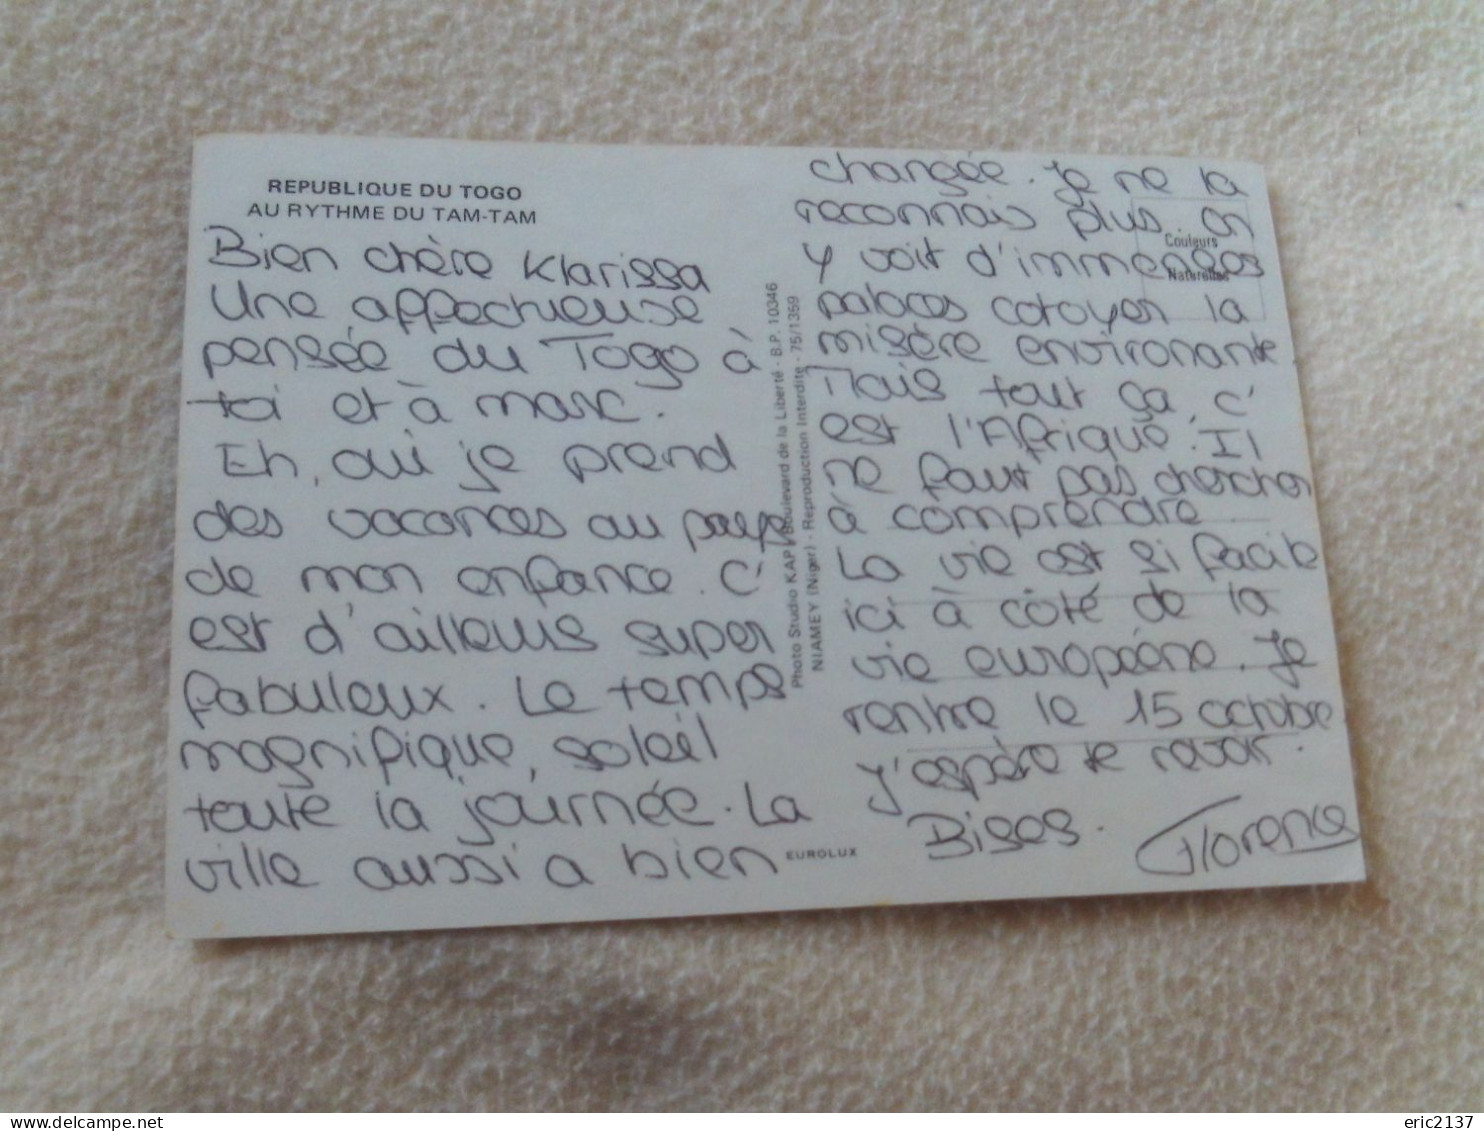 REPUBLIQUE DU TOGO
AU RYTHME DU TAM-TAM
Bien chère Klarissa
Une affectueuse
pensée du Togo à
toi et à marc.
Eh, oui je prend
des vacances au pays
de mon enfance. C'
est d'ailleurs super
fabuleux. Le temps
magnifique, soleil
toute la journée. La
ville aussi a bien
Photo Studio KAPI Boulevard de la Liberté - B.P. 10346
NIAMEY (Niger) - Reproduction Interdite - 75/1359
EUROLUX
Couleurs
Naturelles
changée. Je ne la
reconnais plus. on
y voit d'immenses
palaces cotoyer la
misère environante
Mais tout ça, c'
est l'Afrique. Il
ne faut pas chercher
à comprendre.
La vie est si facile
ici à côté de la
vie européene. Je
rentre le 15 octobre
J'espère te revoir.
Bises.
Florence
eric2137